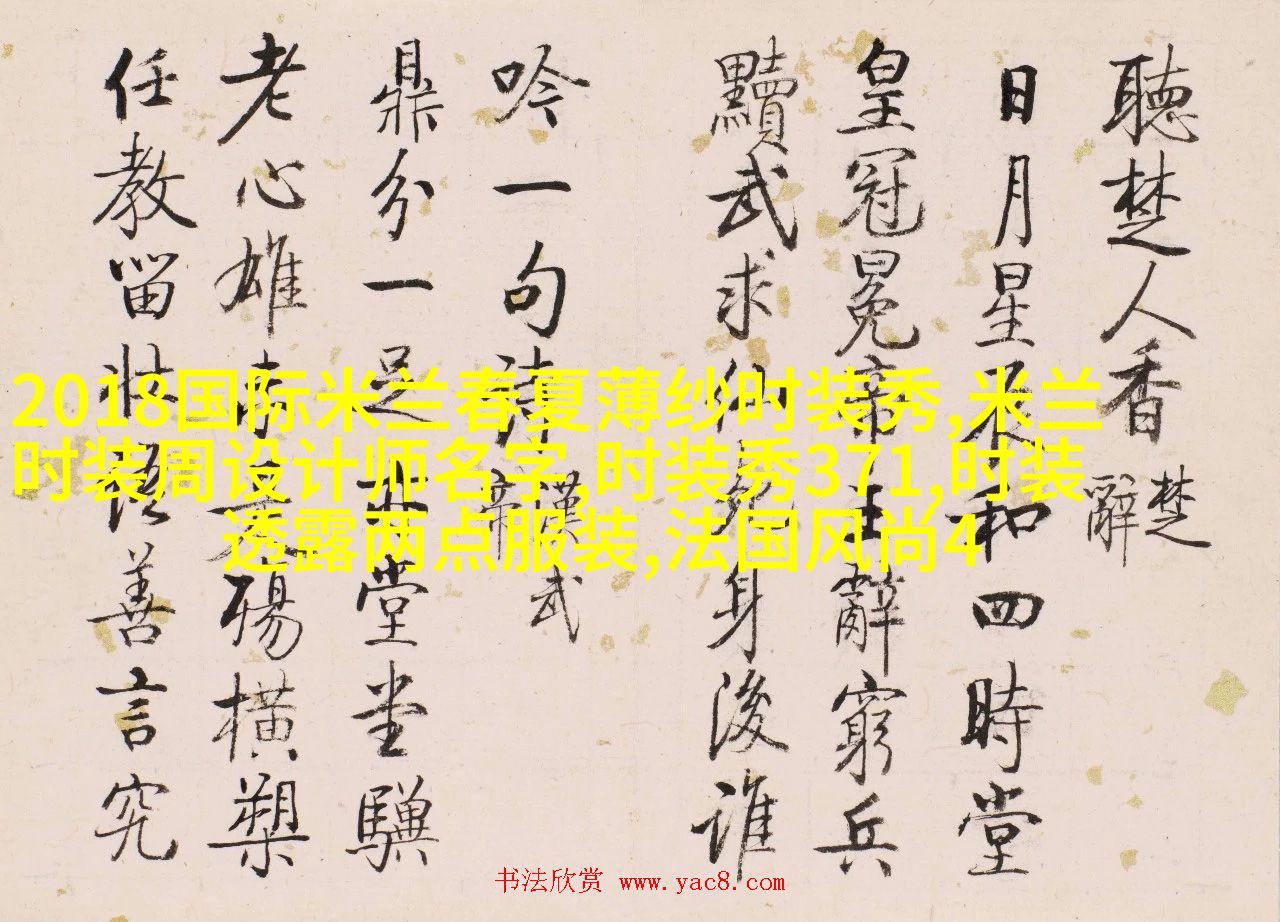 聽楚人香 楚辭
日月星辰和四時堂
皇冠冕帝王辭窮兵
黷武求仙身後誰
吟一句詩 漢武帝
鼎分一足亦堂堂驥
老心雄殤橫槊
任教留壯語善言究
2018国际米兰春夏薄纱时装秀,米兰
时装周设计师名字,时装秀371,时装
透露两点服装,法国风尚4
书法欣赏 www.yac8.com